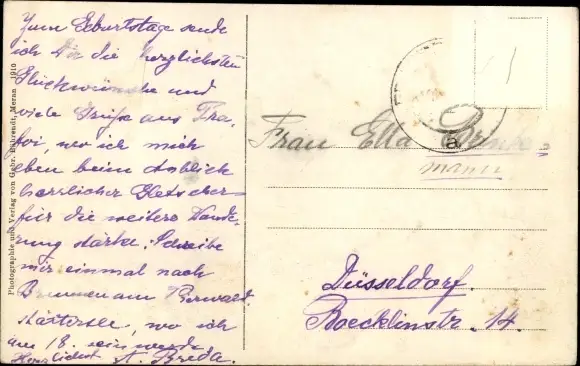 Zum Geburtstage sende
ich Dir die herzlichsten
Glückwünsche und
viele Grüße aus Tra-
foi, wo ich mich
eben beim Anblick
herrlicher Gletscher
für die weitere Wande-
rung stärke. Schreibe
mir einmal nach
Brunnen am Vierwald-
stättersee, wo ich
am 18. sein werde.
Herzlichst A. Breda.
Photographie und Verlag von Gebr. Bährendt, Meran 1910
Frau Ella
mann
a
Düsseldorf.
Boecklinstr. 14.